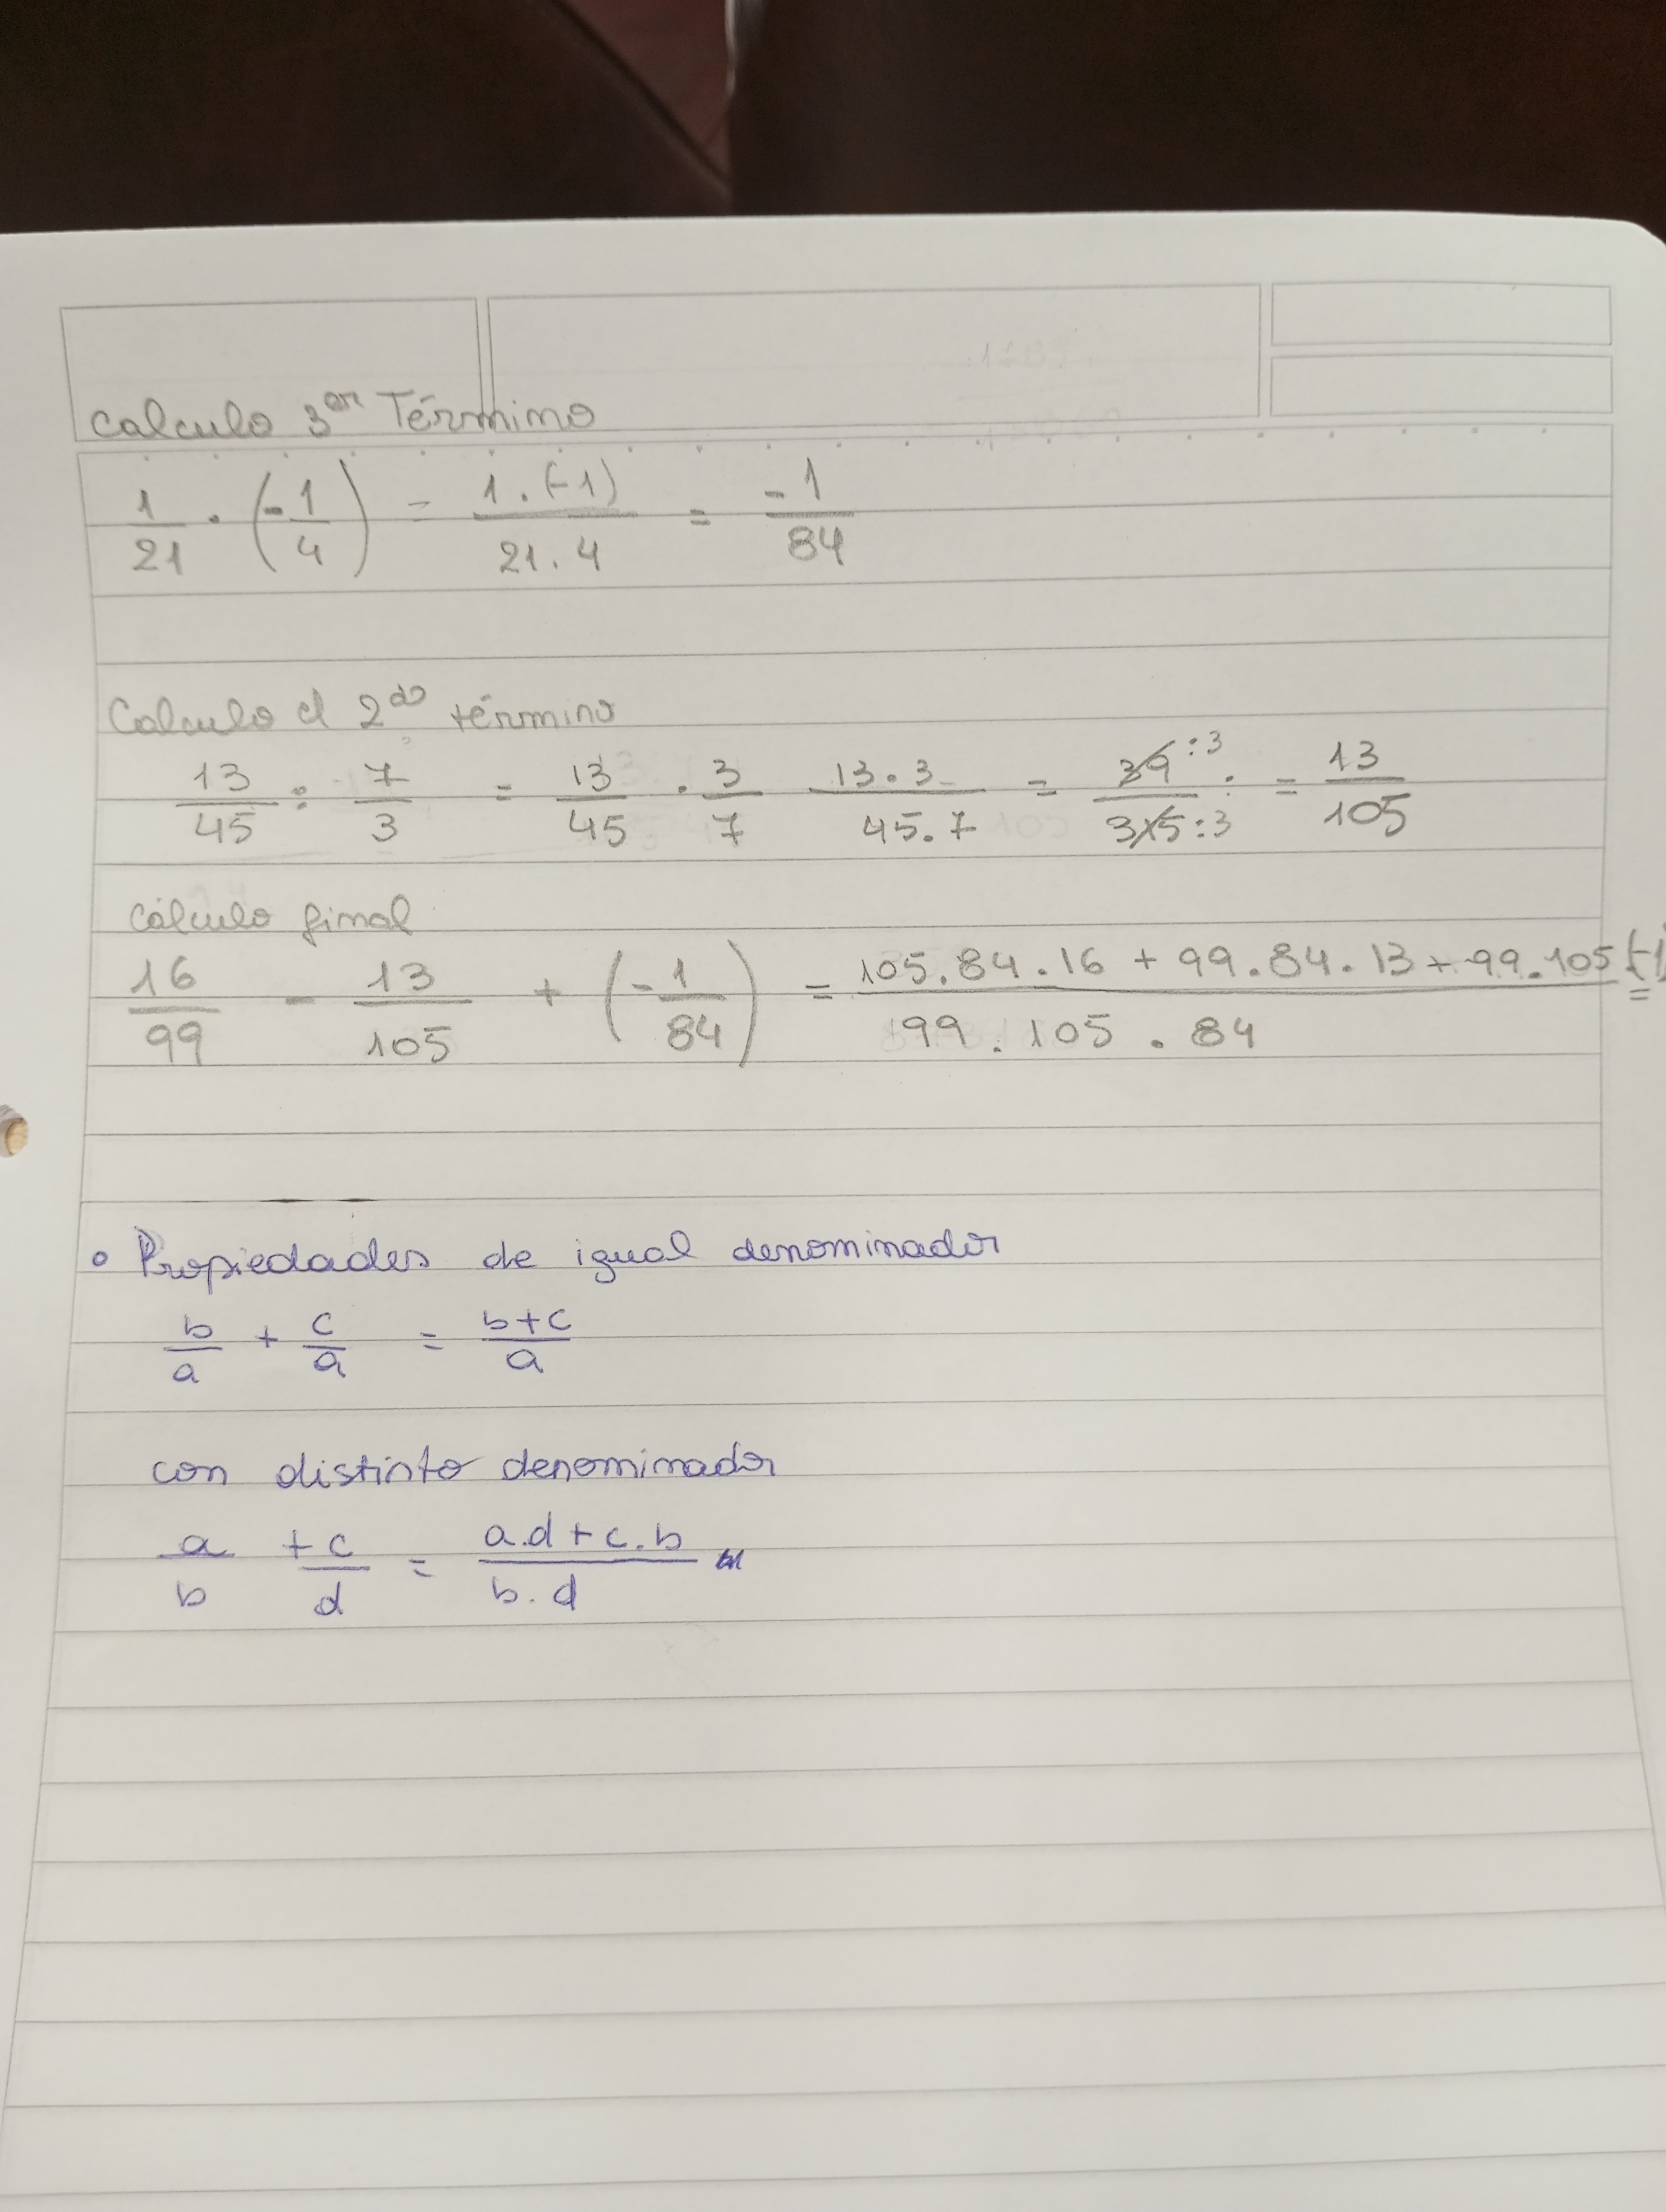 Calculo 3er Término
1/21 . (-1/4) = 1.(-1)/21.4 = -1/84
Calculo el 2do término
13/45 : 7/3 = 13/45 . 3/7 13.3/45.7 = 39:3/315:3 = 13/105
Cálculo final
16/99 - 13/105 + (-1/84) = 105.84.16 + 99.84.13 + 99.105(-1)/99.105.84 =
• Propiedades de igual denominador
b/a + c/a = b+c/a
con distinto denominador
a/b + c/d = a.d+c.b/b.d